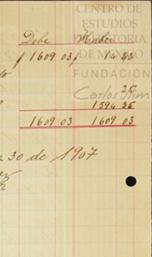 CENTRO DE
ESTUDIOS
DE HISTORIA
DE MEXICO
FUNDACIÓN
Carlos Slim
Debe Haber
1609 03 14 68
1594 35
1609 03 1609 03
30 de 1907